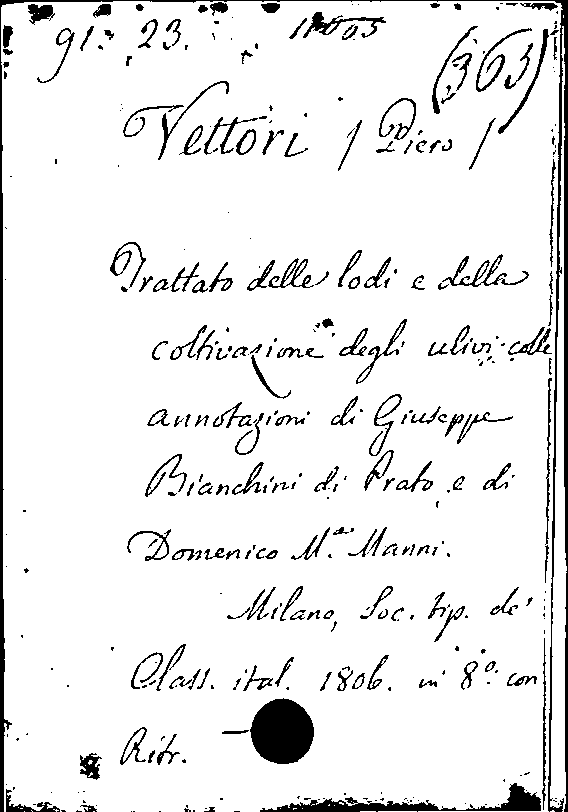 91. 23.
(363)
Vettori / Piero /
Trattato delle lodi e della
coltivazione degli ulivi colle
annotazioni di Giuseppe
Bianchini di Prato e di
Domenico M.ª Manni.
Milano, Soc. tip. de'
Class. ital. 1806. in 8.º con
Ritr.